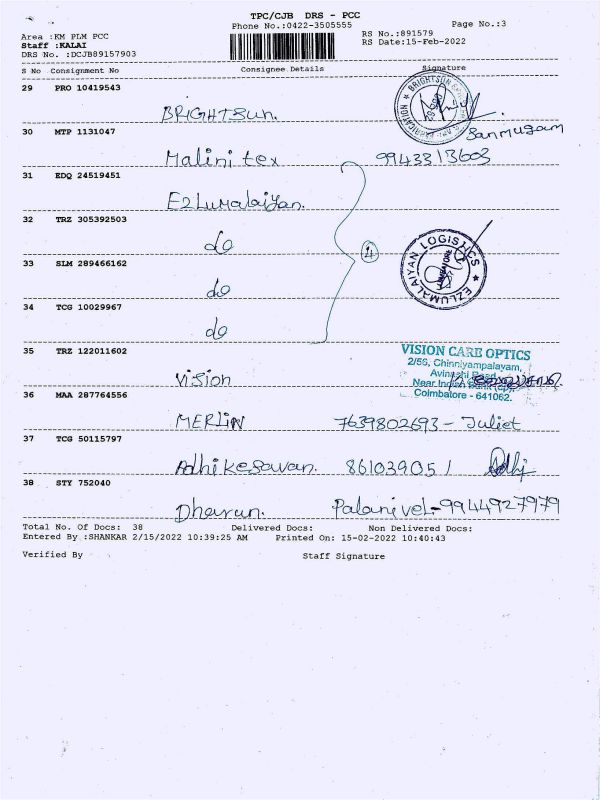 TPC/CJB DRS - PCC
Phone No.:0422-3505555
Page No.:3
Area :KM PLM PCC
RS No.:891579
Staff :KALAI
RS Date:15-Feb-2022
DRS No. :DCJB89157903
S No Consignment No Consignee Details Signature
29 PRO 10419543
BRIGHTSun.
BRIGHTSUN
Sanmugam
30 MTP 1131047
Malini tex 9943313603
31 EDQ 24519451
Ezlumalaiyan.
32 TRZ 305392503
do
4
EZLUMALAIYAN LOGISTICS
33 SLM 289466162
do
34 TCG 10029967
do
35 TRZ 122011602
Vision
VISION CARE OPTICS
2/56, Chinniyampalayam,
Avinashi Road,
Near Indian Bank
Coimbatore - 641062.
36 MAA 287764556
MERLIN 7639802693 - Juliet
37 TCG 50115797
Adhikesavan. 861039051 Adhi
38 STY 752040
Dharun. Palanivel-9944927979
Total No. Of Docs: 38 Delivered Docs: Non Delivered Docs:
Entered By :SHANKAR 2/15/2022 10:39:25 AM Printed On: 15-02-2022 10:40:43
Verified By Staff Signature